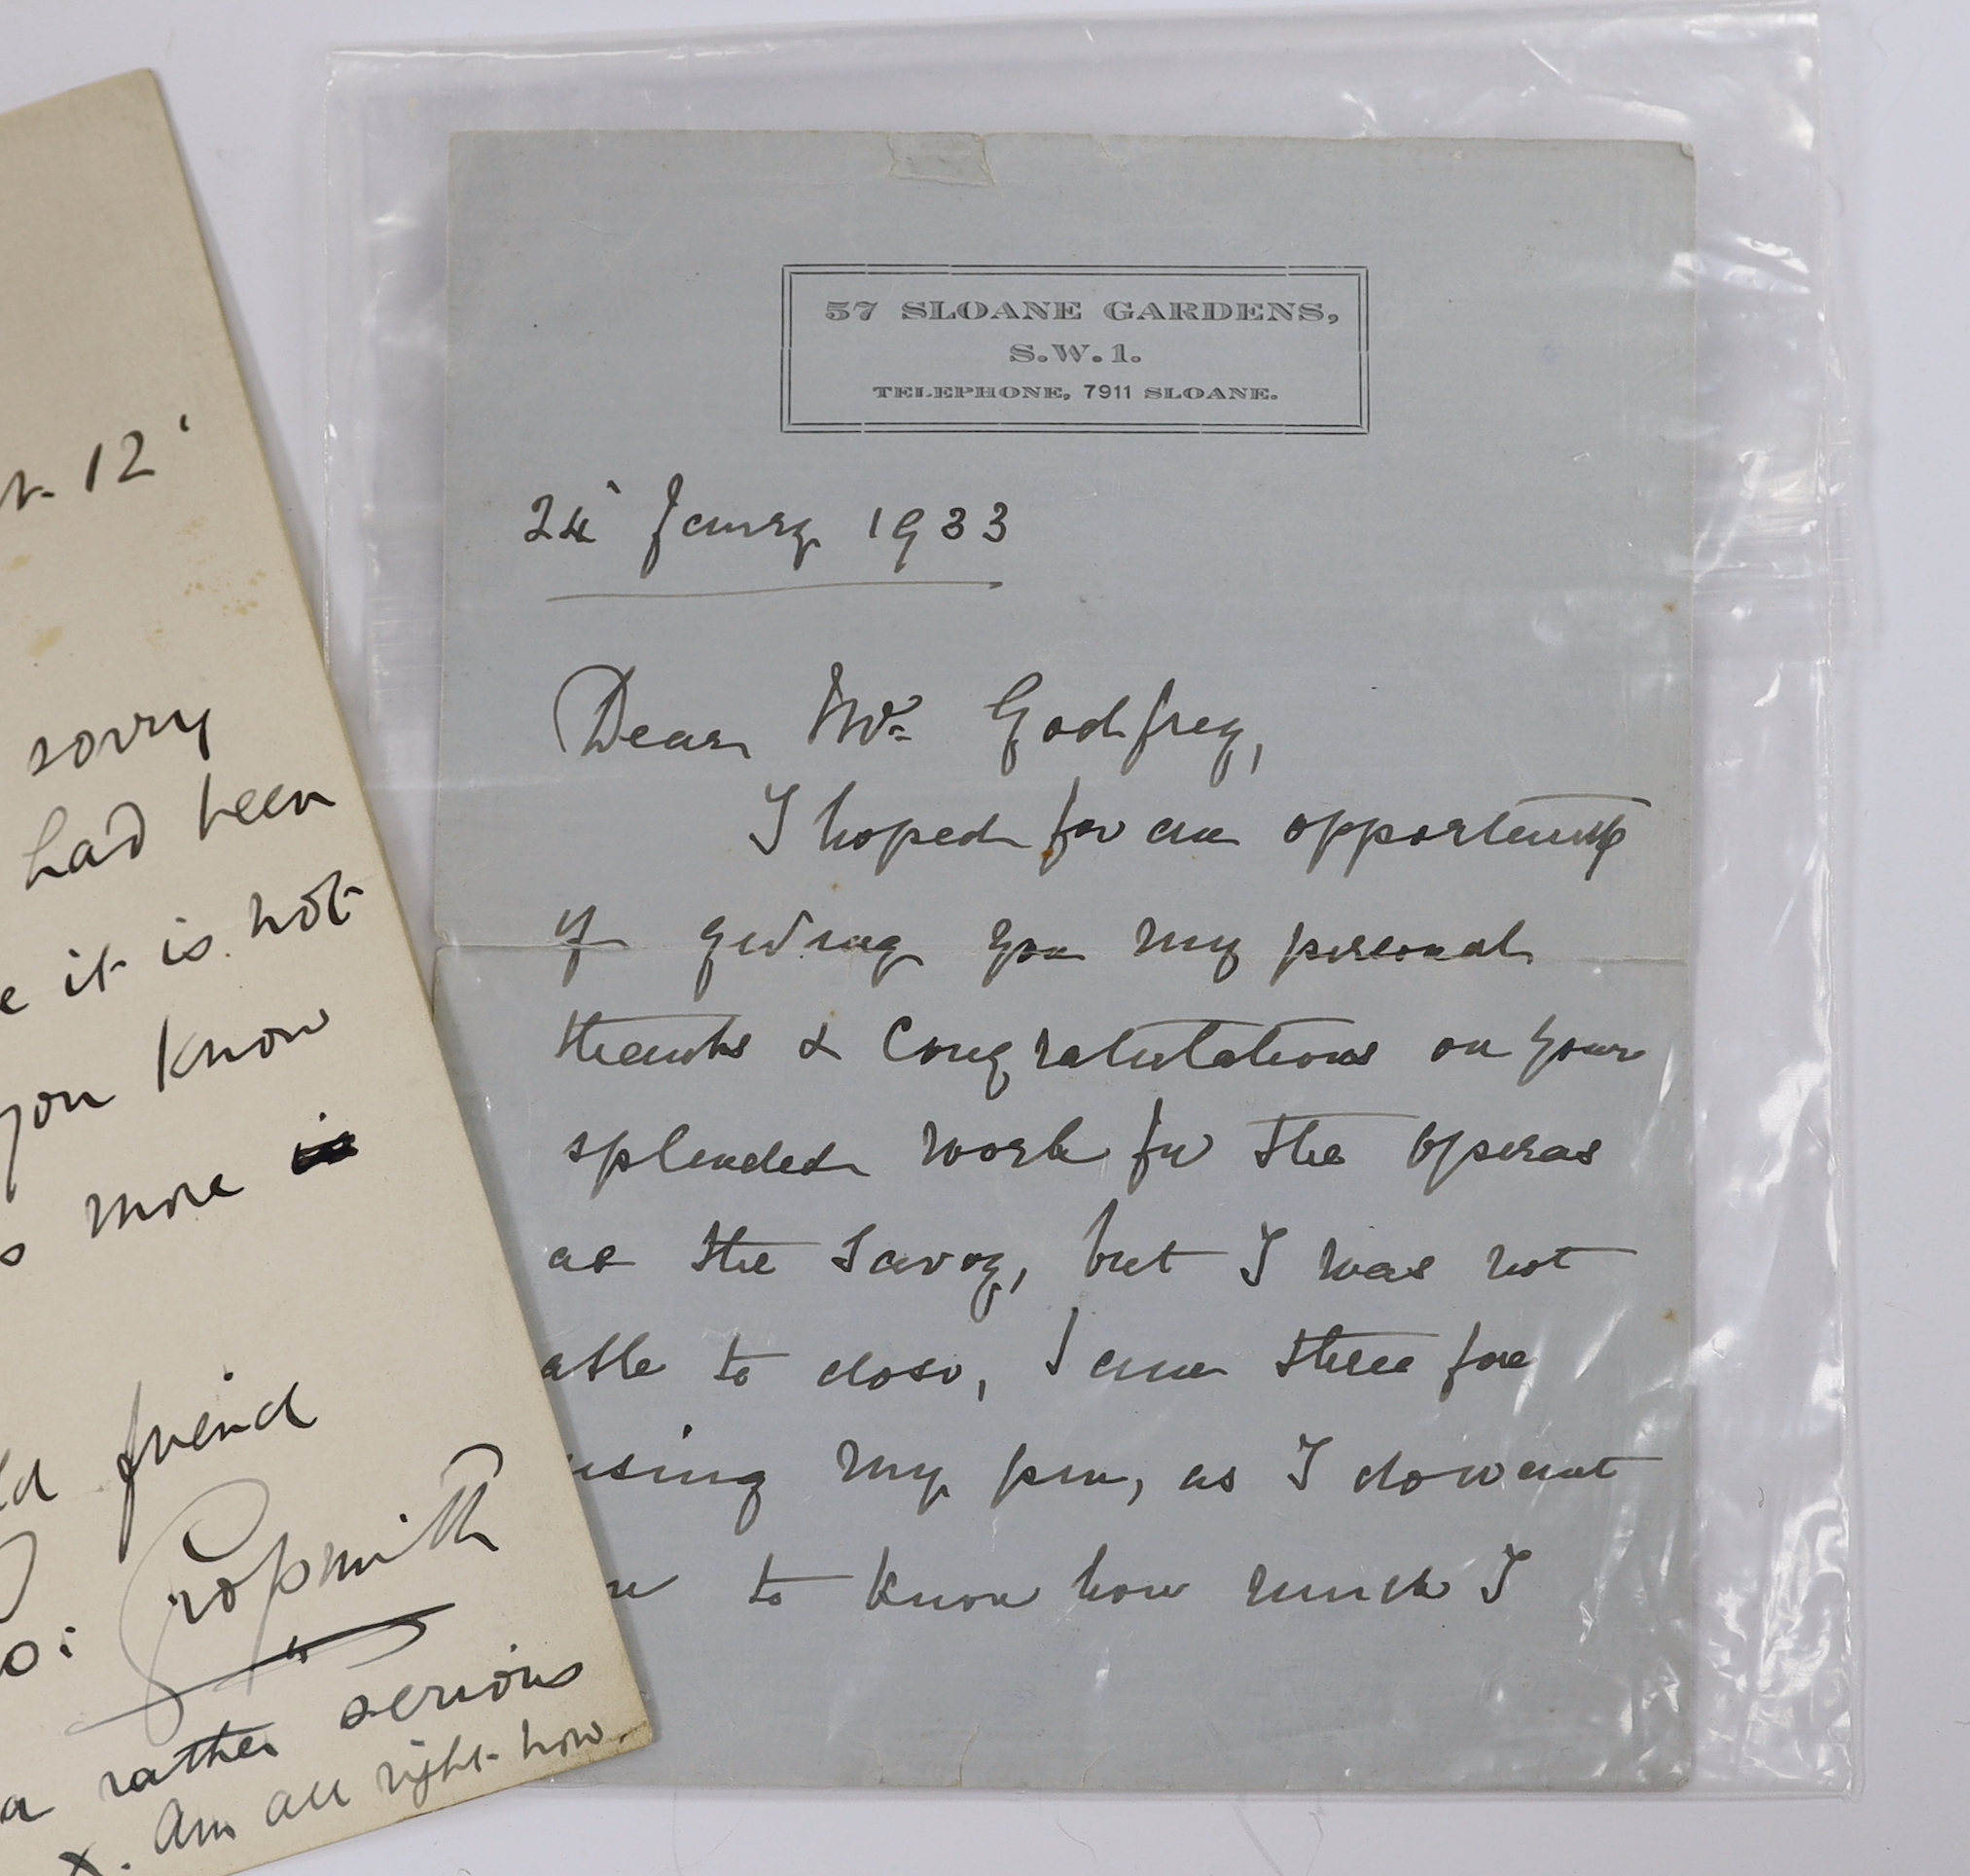 12
sorry
had been
it is not
you know
more
friend
Grossmith
rather serious
Am all right now.
57 SLOANE GARDENS,
S.W.1.
TELEPHONE, 7911 SLOANE.
24 1933
Dear Mr Godfrey,
I hoped for an opportunity
of giving you my personal
thanks & Congratulations on your
splended work for the Operas
at the Savoy, but I was not
able to do so, I am there fore
using my pen, as I do want
to know how much I